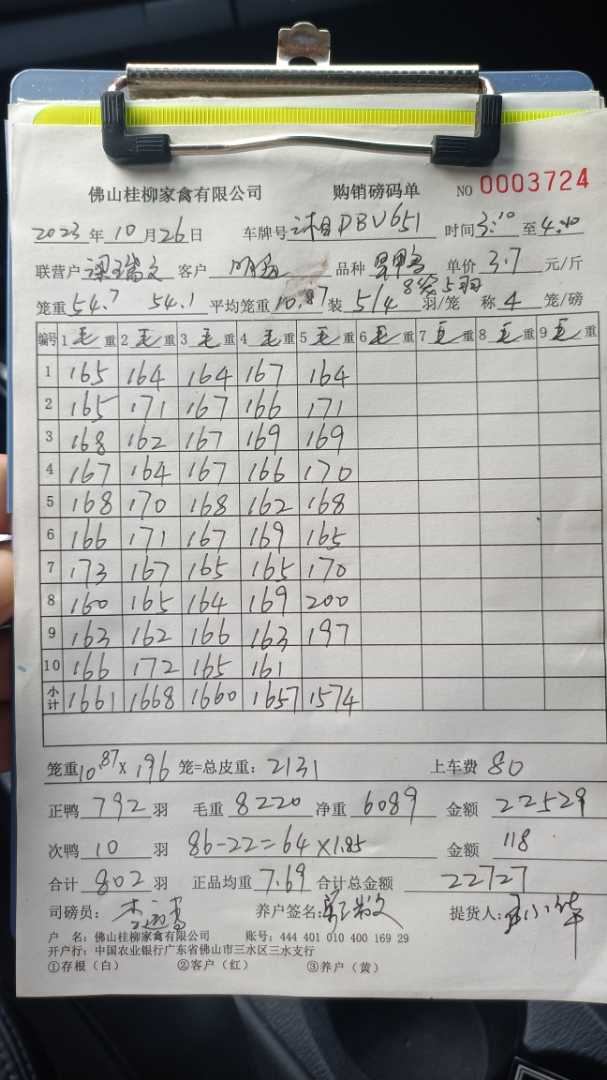 佛山桂柳家禽有限公司 购销磅码单 NO 0003724
2023年10月26日 车牌号 DBV651 时间3:10至4:40
联营户 客户 品种 单价3.7元/斤
8袋5羽
笼重54.7 54.1 平均笼重10.87装5/4羽/笼 称4笼/磅
编号 1毛重 2毛重 3毛重 4毛重 5毛重 6毛重 7毛重 8毛重 9毛重
1 165 164 164 167 164
2 165 171 167 166 171
3 168 162 167 169 169
4 167 164 167 166 170
5 168 170 168 162 168
6 166 171 167 169 165
7 173 167 165 165 170
8 160 165 164 169 200
9 163 162 166 163 197
10 166 172 165 161
小计 1661 1668 1660 1657 1574
笼重10.87×196笼=总皮重:2131 上车费80
正鸭792羽 毛重8220净重6089 金额22529
次鸭10羽 86-22=64×1.85 金额118
合计802羽 正品均重7.69合计总金额22727
司磅员: 养户签名: 提货人:
户 名:佛山桂柳家禽有限公司 账号:444 401 010 400 169 29
开户行:中国农业银行广东省佛山市三水区三水支行
①存根(白) ②客户(红) ③养户(黄)